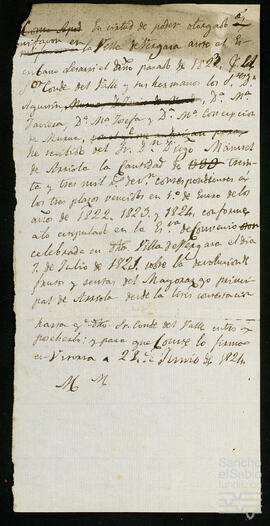 Como Apod. En virtud de poder otorgado pr.
en la Villa de Vergara ante el Es-
cribano el año pasado de 1824, el
Sor. Conde del Valle y sus hermanos los Sres. Dn.
Agustin, Da. Ma.
Javiera, Da. Ma. Josefa y Da. Ma. Concepcion
de Munive,
he recibido del Sr. Dn. Iñigo Manuel
de Arriola la Cantidad de trein-
ta y tres mil rs. de vn. correspondientes a
los tres plazos vencidos en 1o. de Enero de los
años de 1822, 1823, y 1824, conforme
a lo estipulado en la Esra. de Convenio
celebrada en dha. Villa de Vergara el dia
7 de Julio de 1821 sobre la devolucion de
frutos y rentas del Mayorazgo princi-
pal de Arriola desde la
hasta qe. dho. Sr. Conde del Valle entró a
poseherlo: y para que conste lo firmo
en Vitoria a 23 de Junio de 1824.
M M
Sancho
el Sabio
fundazioa